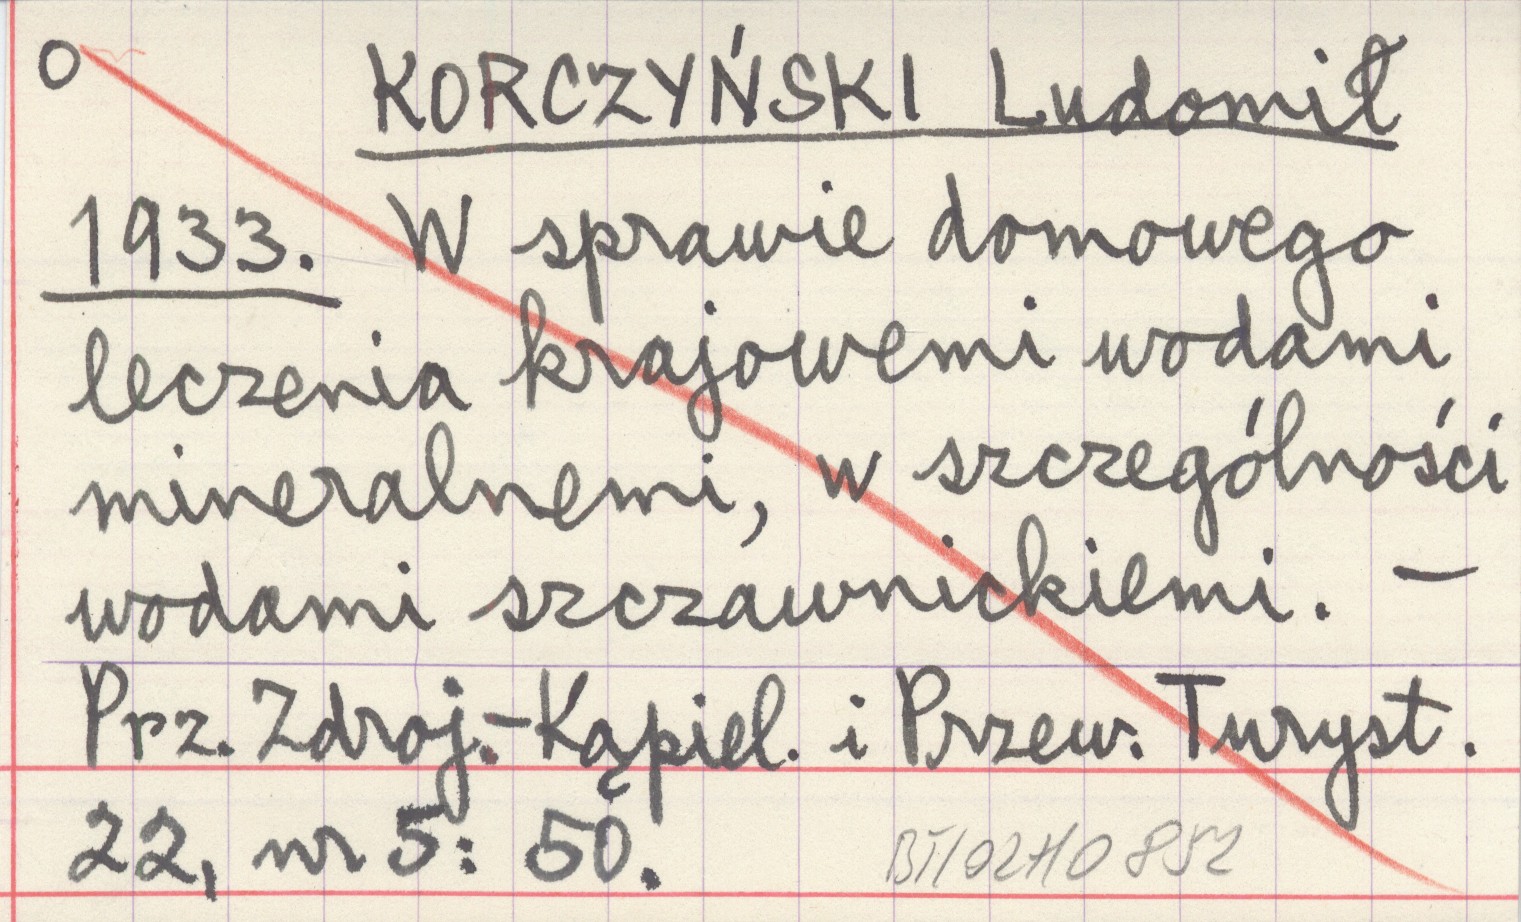 O KORCZYŃSKI Ludomił
1933. W sprawie domowego
leczenia krajowemi wodami
mineralnemi, w szczególności
wodami szczawnickiemi. —
Prz. Zdroj.-Kąpiel. i Przew. Turyst.
22, nr 5: 50.
852